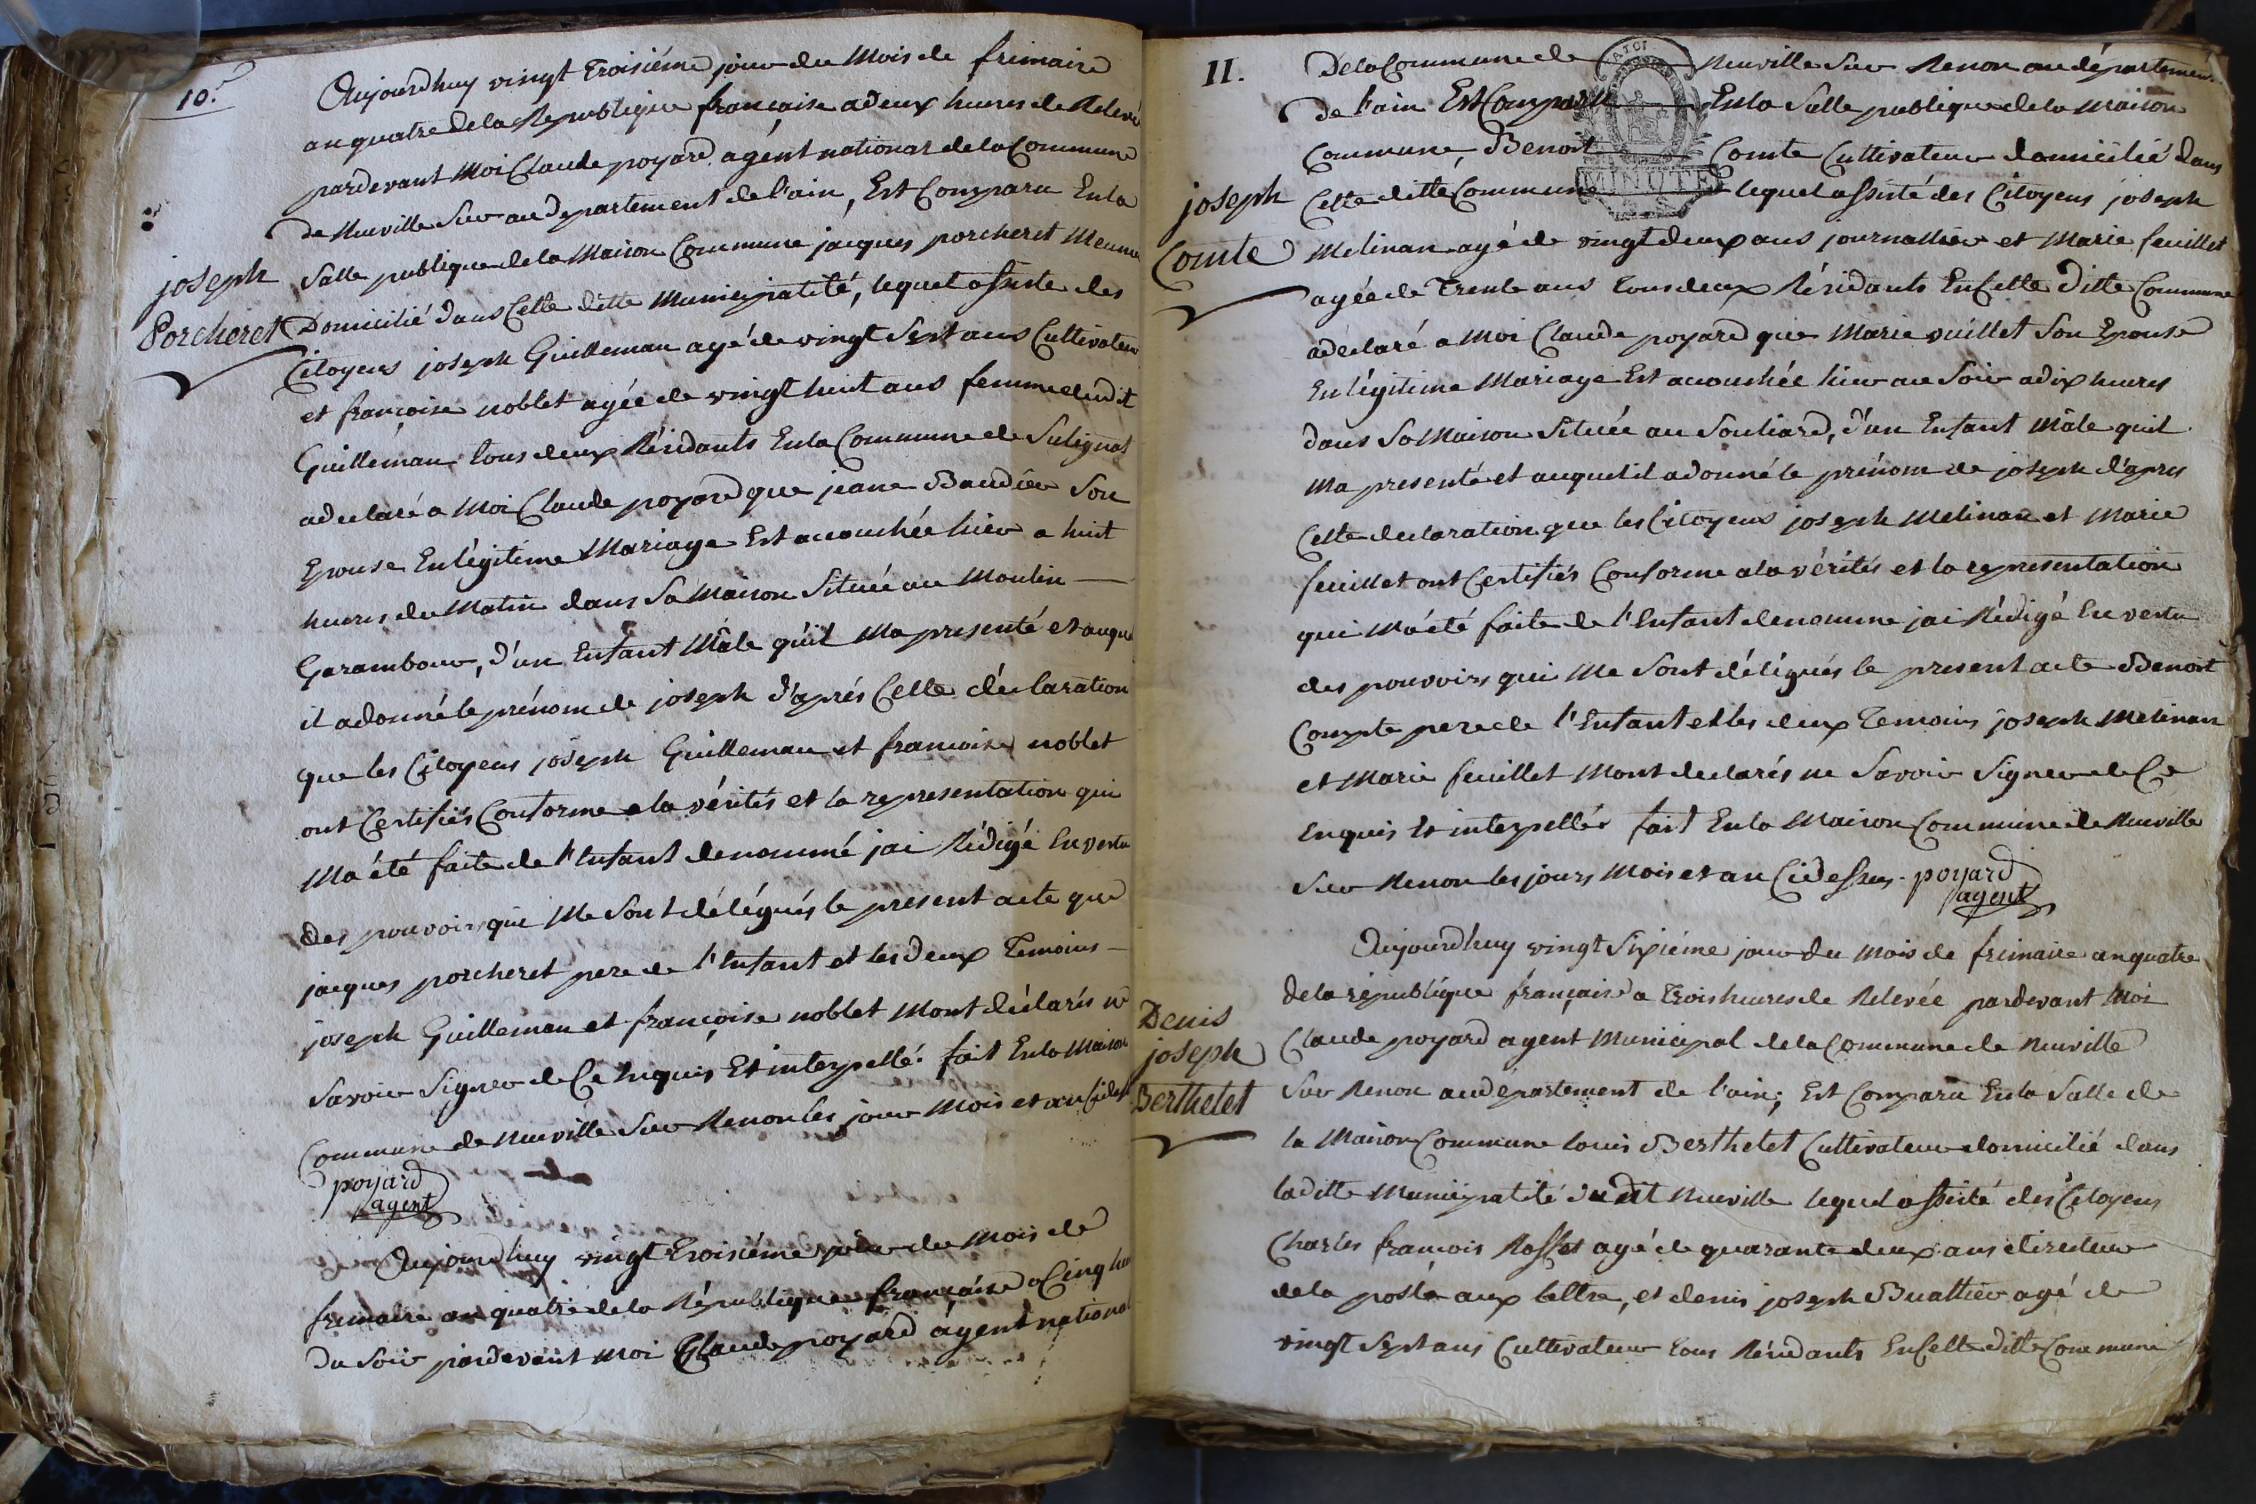 10.e
Aujourdhuy vingt troisiéme jour du mois de frimaire
an quatre dela Republique française a deux heures de Relevé
pardevant moi Claude poyard agént national dela Commune
de Neuville Sur au departement de l'ain, Est Comparu Enla
Salle publique dela Maison Commune jacques porcheret Meunie
joseph
Porcheret
Domicilié dans Cette ditte municipalité, lequel assiste des
Citoyens joseph Guilleman agé de vingt Sept ans Cultivateur
et françoise noblet agée de vingt huit ans femme dudit
Guilleman tous deux Résidants Enla Commune de Sulignat
adeclaré a Moi Claude poyard que jeane Baudier Son
Epouse Enlégitime Mariage Est acouchée hier a huit
heures du Matin dans Sa Maison Située au Moulin —
Garambour, d'un Enfant Mâle qúil Ma presenté et auque
il adonné le prénom de joseph d'aprés Cette déclaration
que les Citoyens joseph Guilleman et francoise noblet
ont Certifiés Conforme ala vérités et la representation qui
Ma été faite de l'Enfant denommé jai Rédigé En vertu
des pouvoirs qui Me Sont délégués le present acte que
jacques porcheret pere de l'Enfant et les Deux Temoins —
joseph Guilleman et françoise noblet Mont déclarés ne
Savoir Signer de Ce Enquis Et interpellé. fait Enla Maison
Commune de Neuville Sur Renon les jour Mois et an Cidess
poyard
agent
Aujourdhuy vingt troisiéme jour du Mois de
frimaire an quatre dela République française a Cinq heu
du Soir pardevant moi Claude poyard agent national
11.
Dela Commune de Neuville Sur Renon au département
de l'ain Est Comparu Enla Salle publique dela Maison
Commune, Benoit Comte Cultivateur domicilié dans
MINUTE
joseph
Comte
Cette ditte Commune lequel assisté des Citoyens joseph
Melinan agé de vingt deux ans journallier et Marie feuillet
agée de Trente ans tous deux Résidants En Cette Ditte Commune
adéclaré a Moi Claude poyard que Marie vuillet Son Epouse
Enlégitime Mariage Est acouchée hier au Soir a dix heures
dans Sa Maison Située au Souliard, d'un Enfant Mâle quil
Ma presenté et auquel il adonné le prénom de joseph d'apres
Cette declaration que les Citoyens joseph Melinan et Marie
feuillet ont Certifiés Conforme ala vérités et la representation
qui Ma été faite de l'Enfant denomme jai Rédigé En vertu
des pouvoirs qui Me Sont délégués le present acte Benoit
Compte pere de l'Enfant et les deux Temoins joseph Melinan
et Marie feuillet Mont declarés ne Savoir Signer de Ce
Enquis Et interpellés fait Enla Maison Commune de Neuville
Sur Renon les jours Mois et an Cidessus. poyard
agent
Aujourdhuy vingt Sixiéme jour du Mois de frimaire an quatre
dela république française a Trois heures de Relevée pardevant Moi
Denis
joseph
Berthelet
Claude poyard agent Municipal dela Commune de Neuville
Sur Renon au département de l'ain; Est Comparu Enla Salle de
la Maison Commune louis Berthelet Cultivateur domicilié dans
laditte Municipalité dudit Neuville lequel assisté des Citoyens
Charles francois Rosset agé de quarante deux ans directeur
dela poste aux lettre, et denis joseph Buattier agé de
vingt Sept ans Cultivateur tous Résidants En Cette ditte Commune